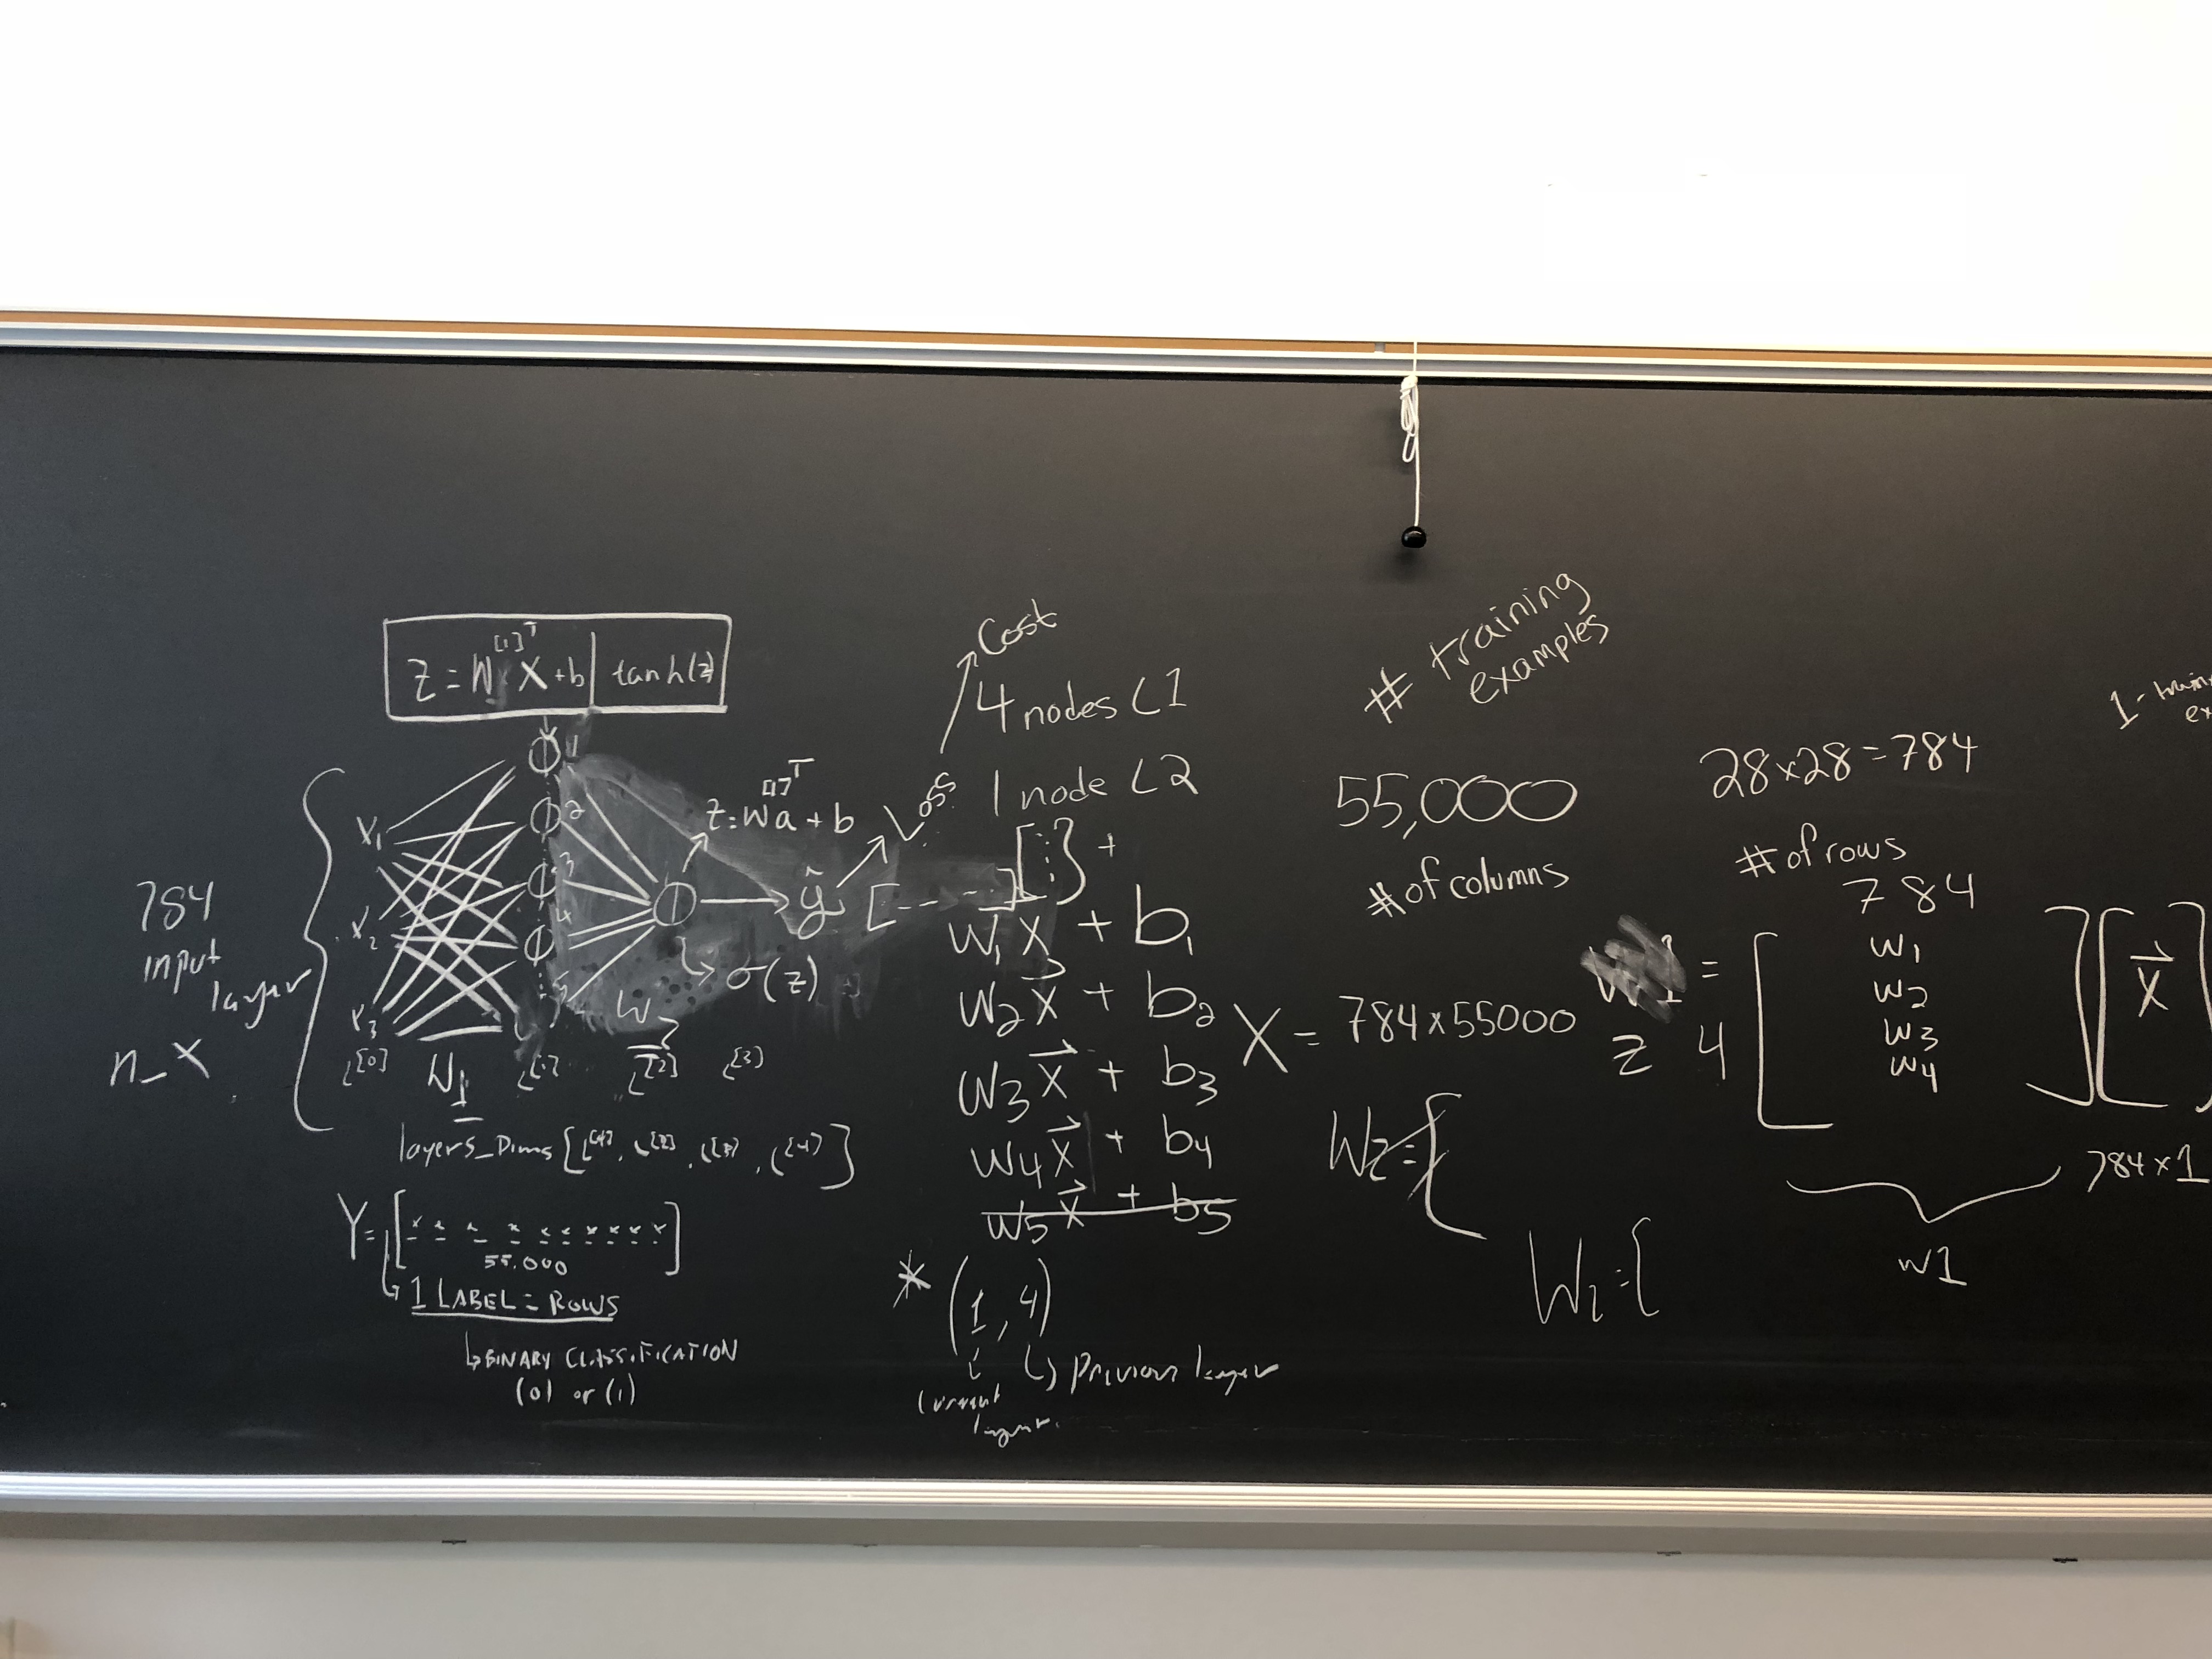 Z = W^[1]^T X + b | tanh(z)
1
2
3
4
5
x₁
x₂
x₃
784
input
layer
n_x
L^[0]
W₁
L^[1]
W₂
L^[2]
L^[3]
z = Wa + b
σ(z)
ŷ
Loss
Cost
layers_Dims
Y = [ x x x x x x x x x x ]
55,000
1 LABEL = ROWS
↳ BINARY CLASSIFICATION
(0) or (1)
4 nodes L1
1 node L2
[- - -] [⋮] +
w₁x⃗ + b₁
w₂x⃗ + b₂
w₃x⃗ + b₃
w₄x⃗ + b₄
w₅x⃗ + b₅
* (1, 4)
current
layer
↳ previous layer
# training
examples
55,000
# of columns
X = 784x55000
W2 = {
28x28 = 784
# of rows
784
=
z 4
w₁
w₂
w₃
w₄
x⃗
784x1
w1
1-train
ex